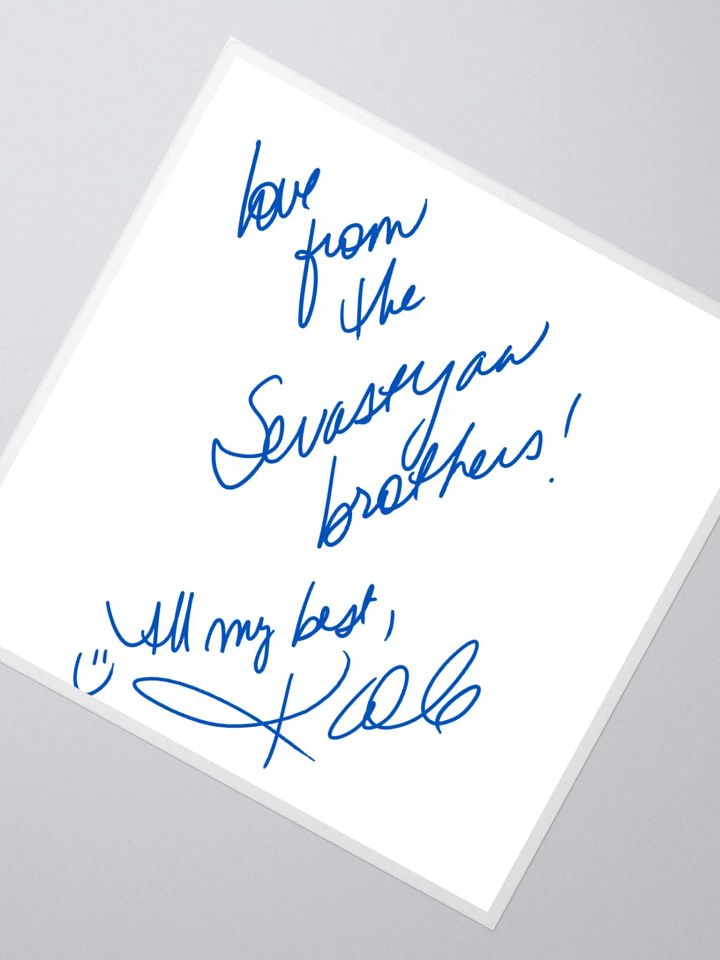 love
from
the
Sevastyan
brothers!
All my best,